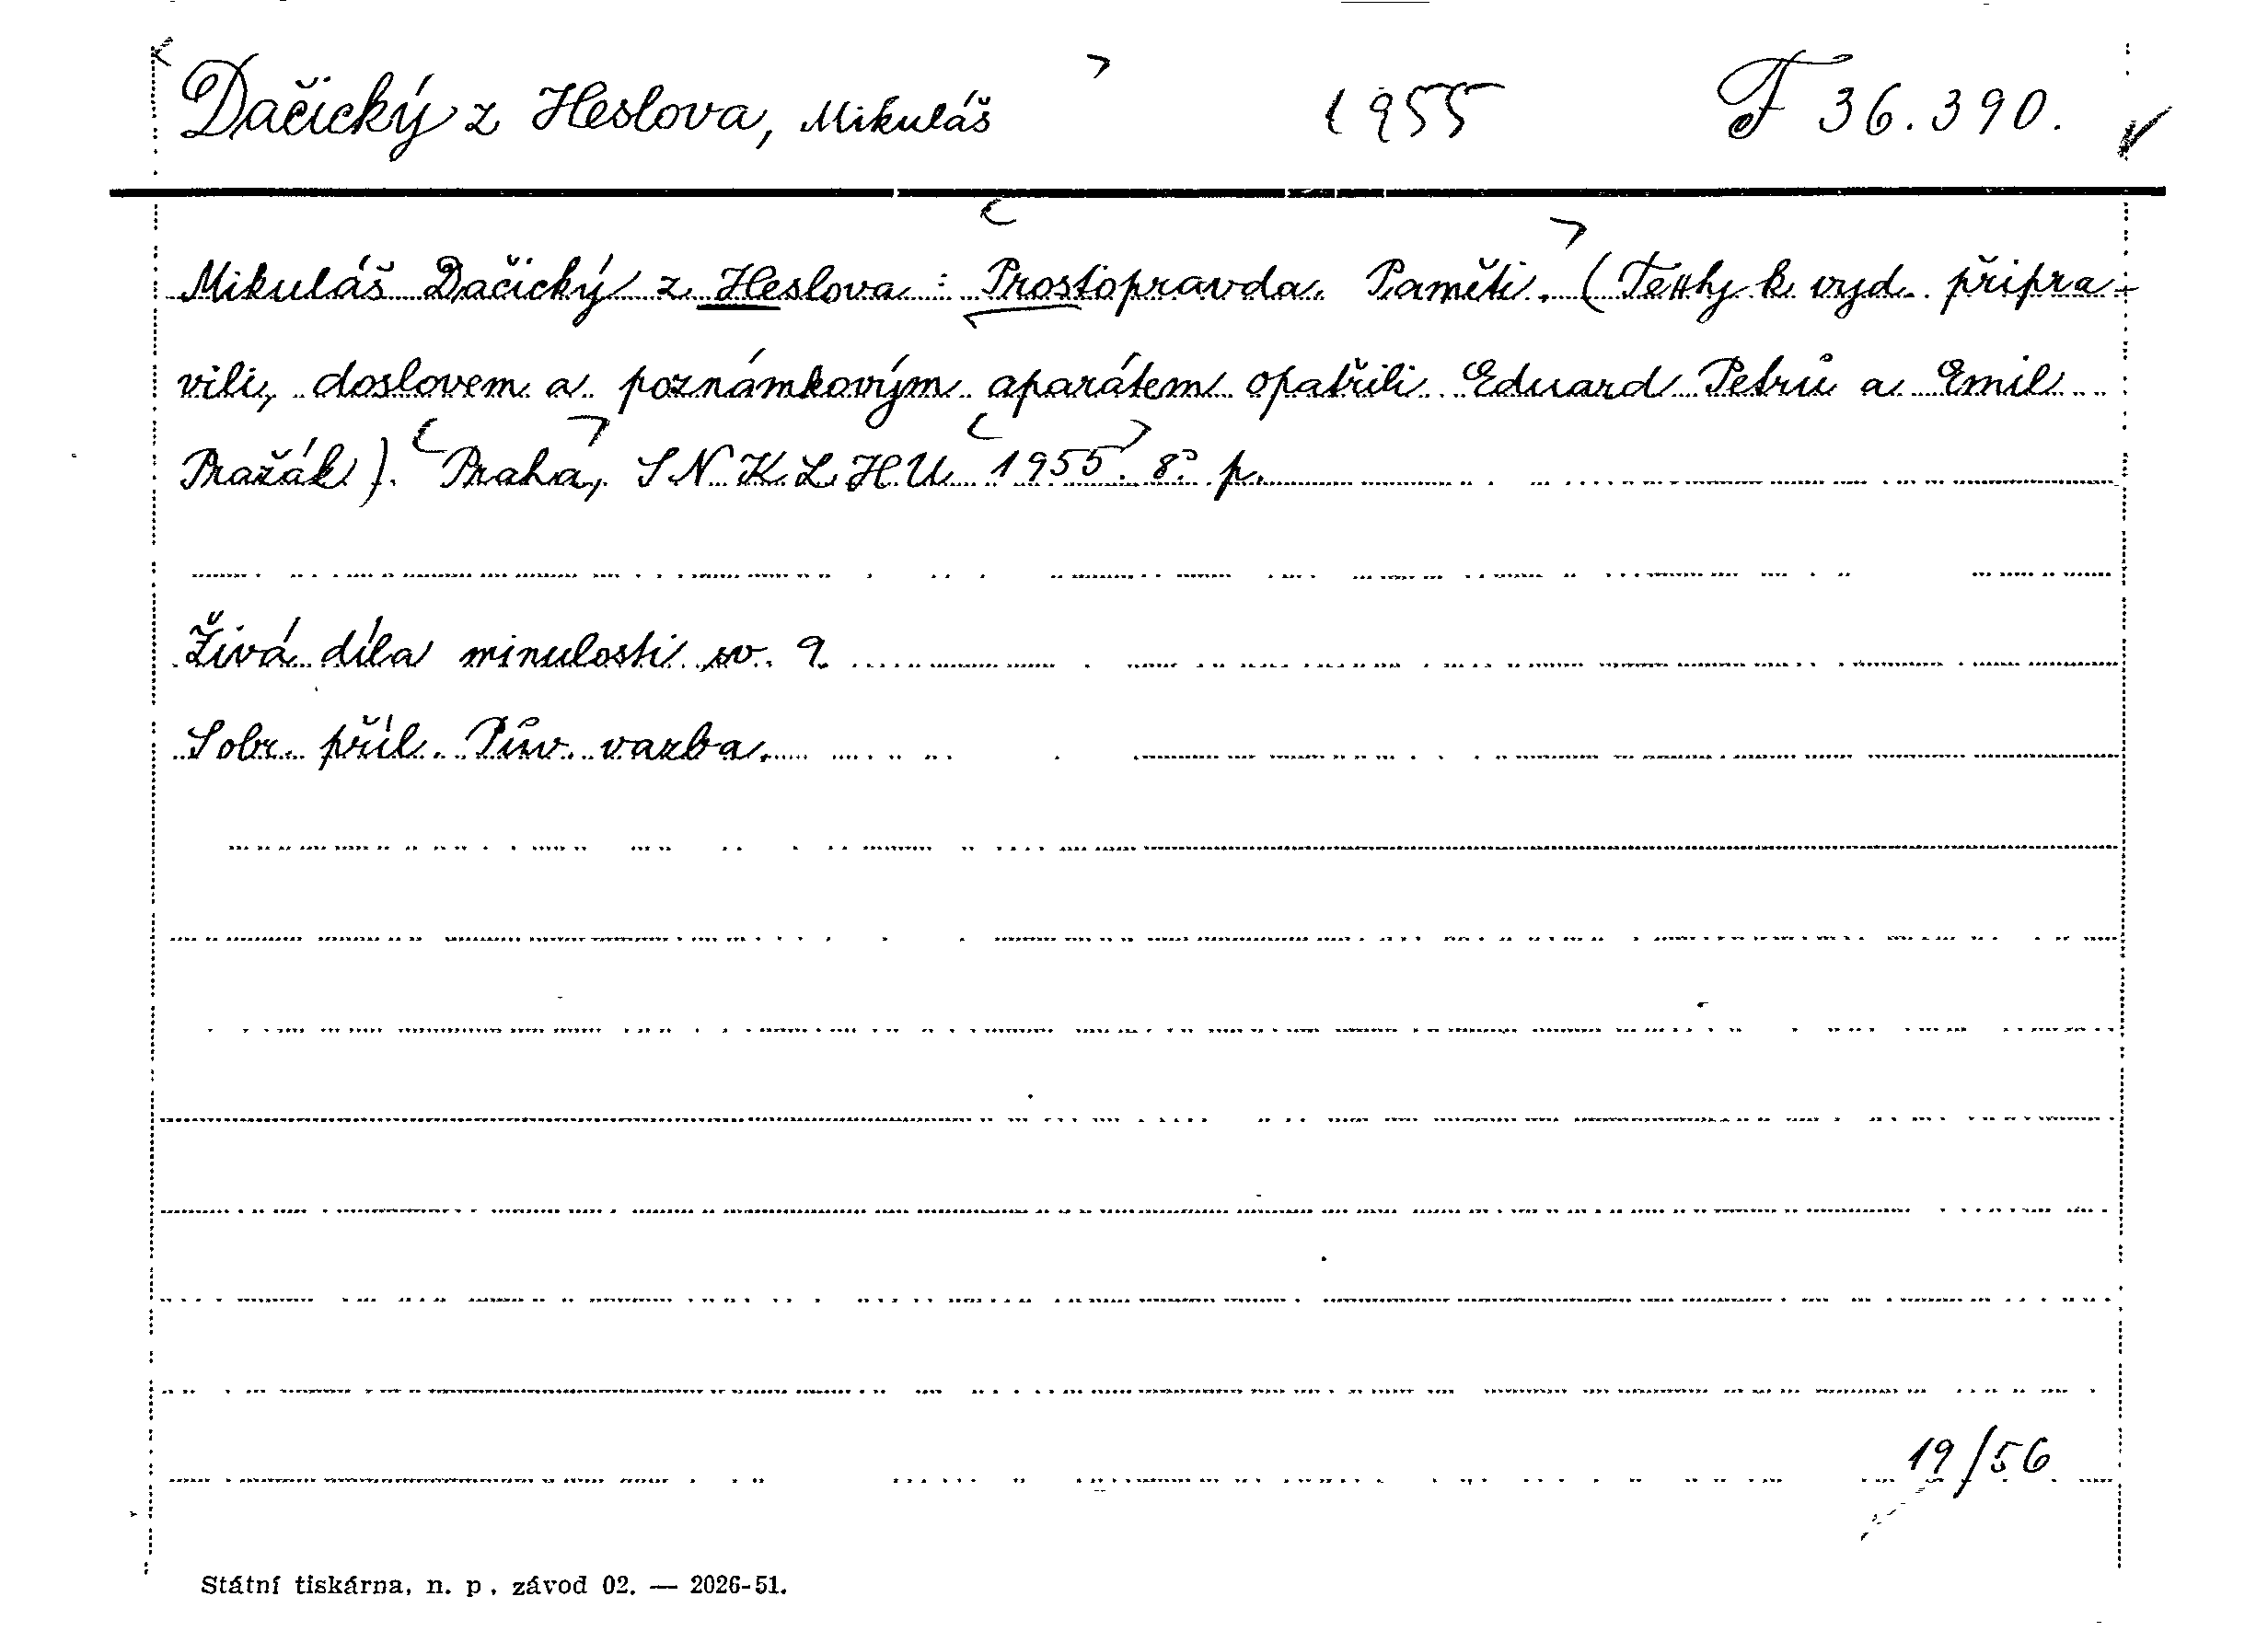 Dačický z Heslova, Mikuláš 1955 F 36.390.
Mikuláš Dačický z Heslova : Prostopravda. Paměti. (Texty k vyd. připra-
vili, doslovem a poznámkovým aparátem opatřili Eduard Petrů a Emil
Pražák). Praha, SNKLHU 1955. 8°. p.
Živá díla minulosti sv. 9.
Sobr. příl. Pův. vazba.
19/56
Státní tiskárna, n. p., závod 02. — 2026-51.